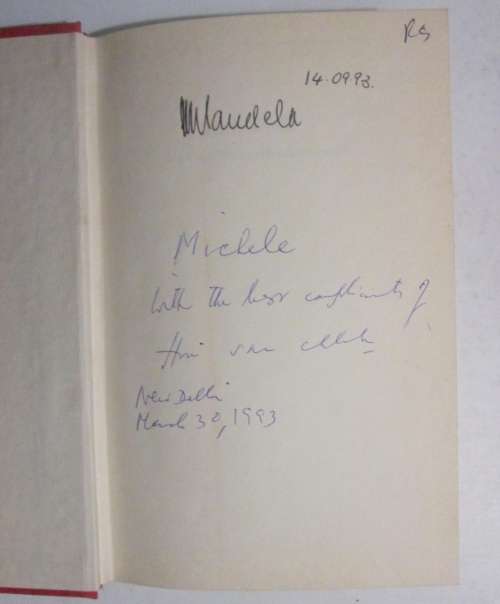 Rs
14.0993.
Mandela
Michele
with the best compliments of
New Delhi
March 30, 1993